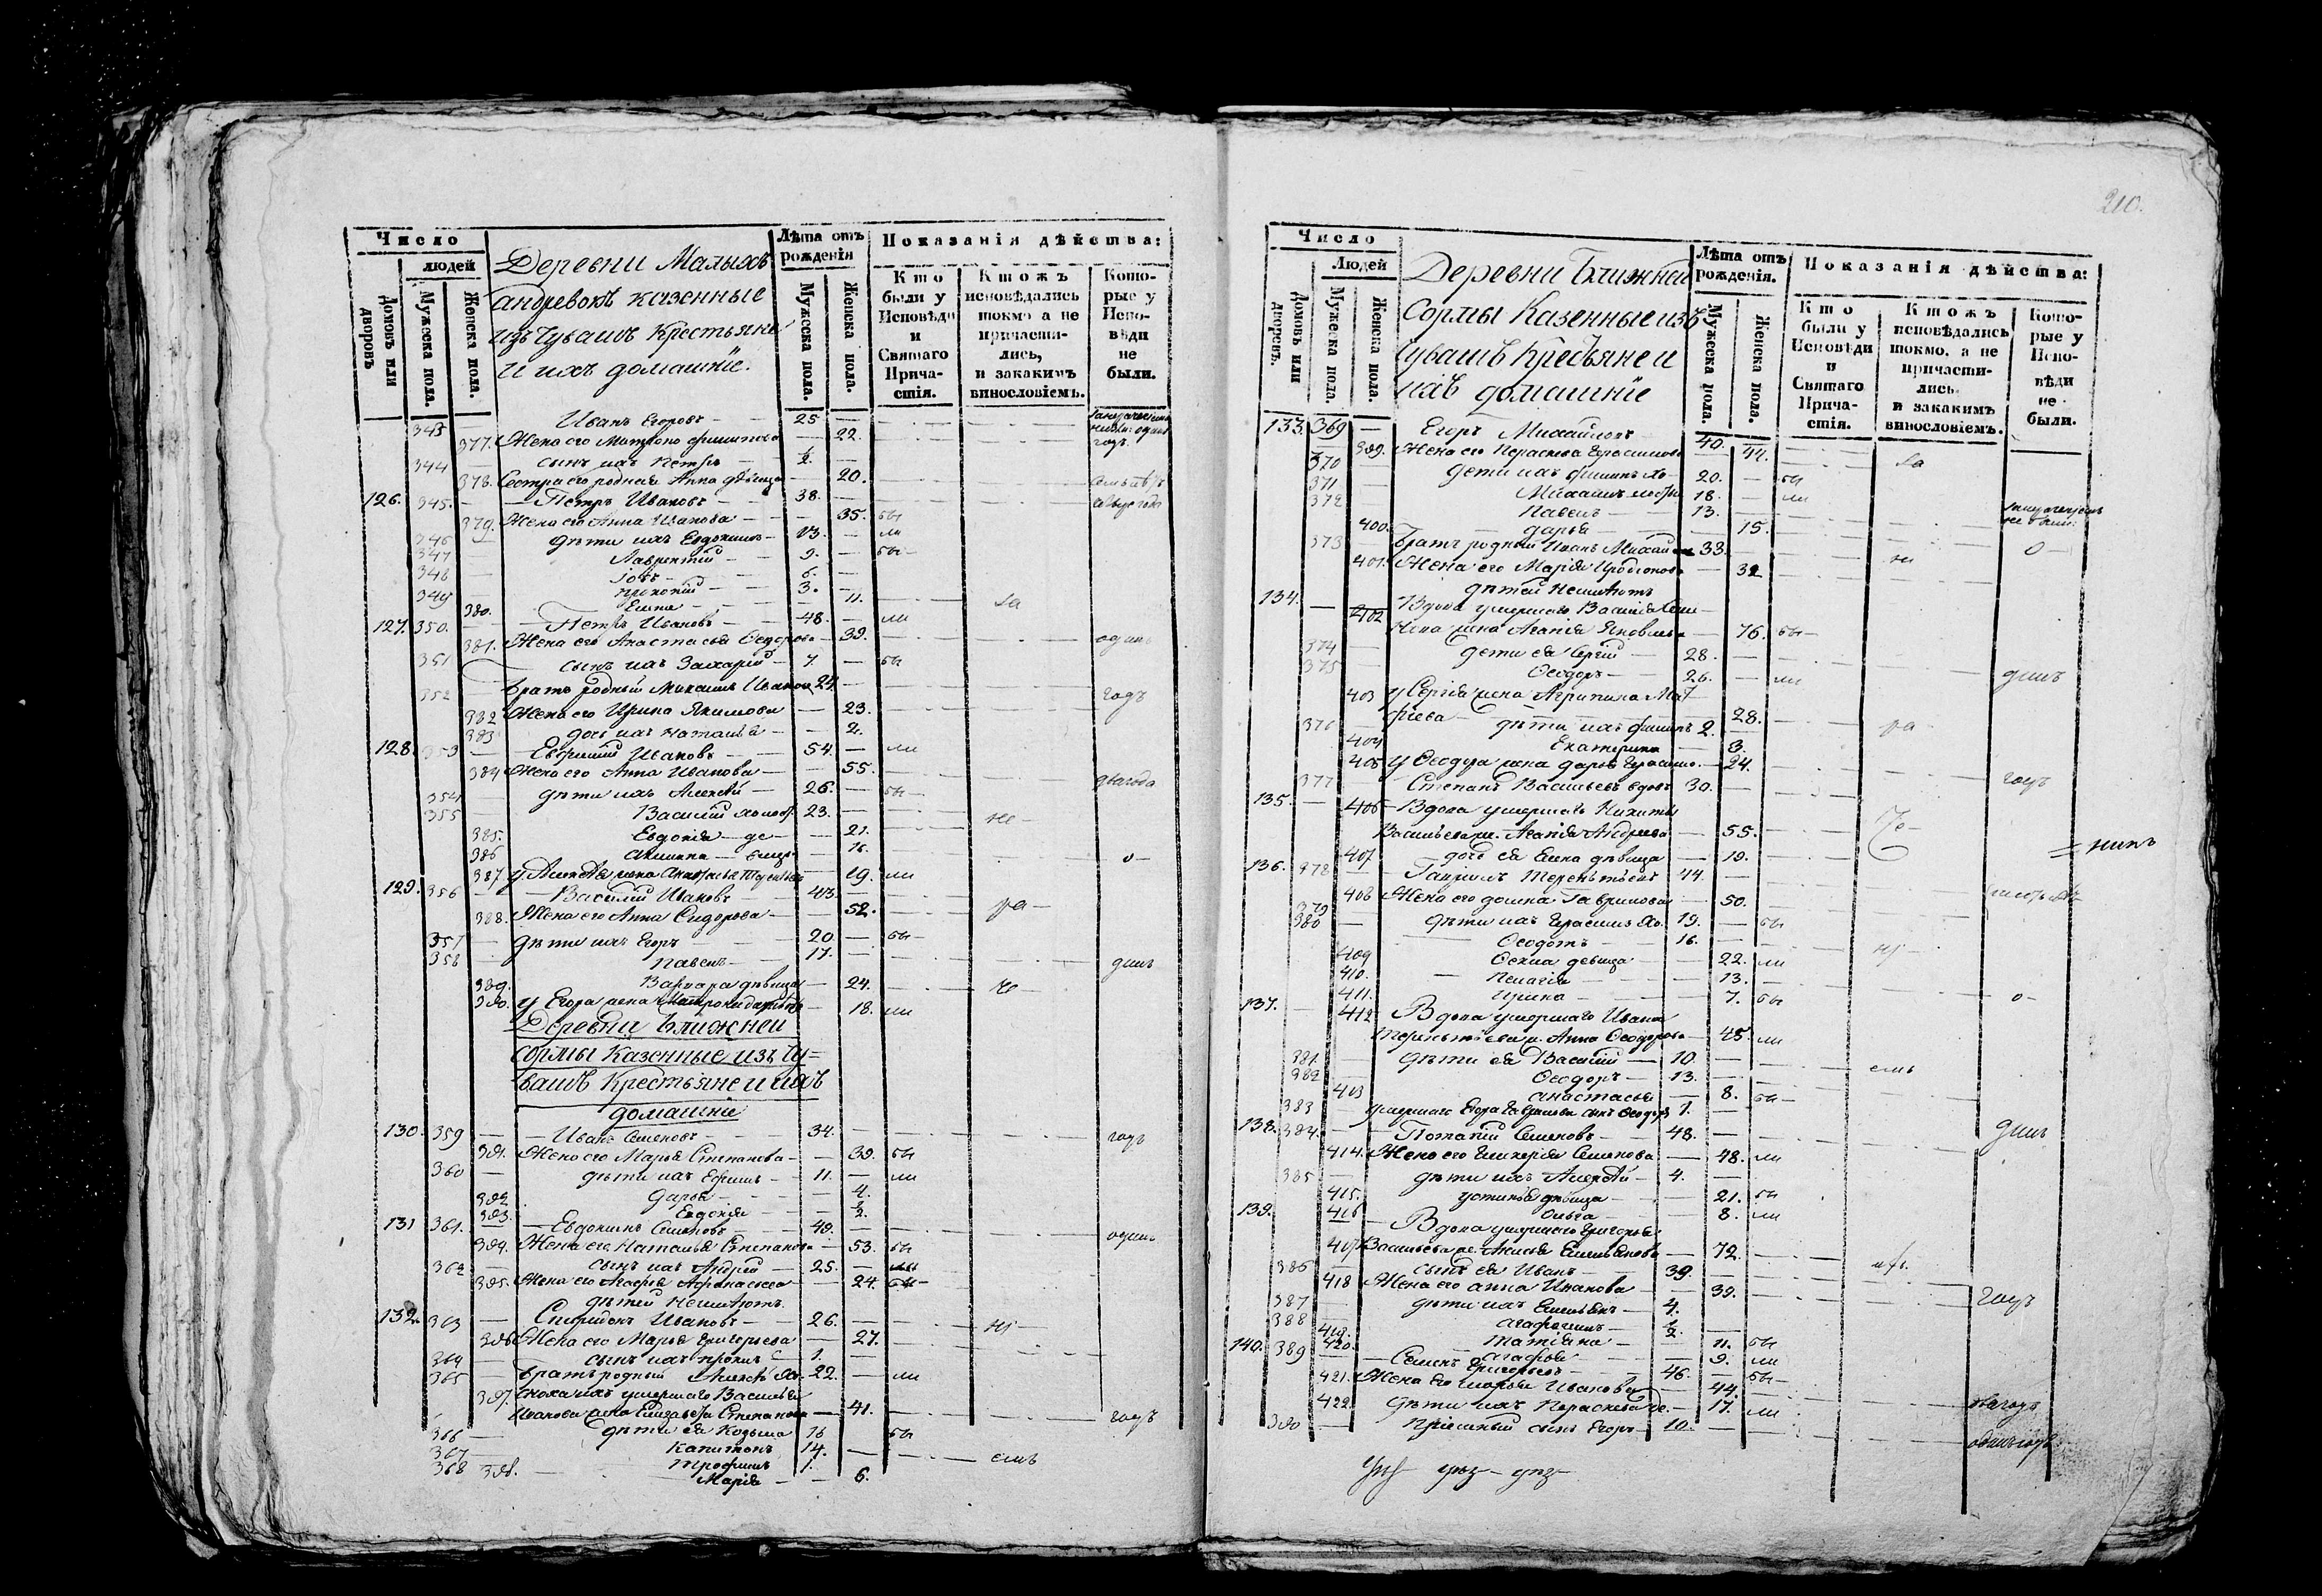 Число
людей
Домовъ или дворовъ
Мужеска пола.
Женска пола.
Деревни Малыхъ
Андревокъ казенные
изъ Чувашъ Крестьяне
и ихъ домашнїе.
Лѣта отъ рожденія
Мужеска пола.
Женска пола.
Показанія дѣйства:
Кто были у Исповѣди и Святаго Причастія.
Ктожъ исповѣдались токмо а не причастились, и закакимъ винословіемъ.
Которые у Исповѣди не были.
343 — Иванъ Егоровъ — 25 —
377. Жена его Матрона Филипова — 22.
344 — сынъ ихъ Петръ — ½. —
378. Сестра его родная Анна дѣвица — 20.
126. 345. — Петръ Ивановъ — 38. —
379. Жена его Анна Иванова — 35. бы
346 — дѣти ихъ Евдокимъ — 13. — ли
347 — Лаврентій — 9. — бы
348 — Іовъ — 6. —
349 — Прокопій — 3. —
380. Елена — 11. за
127. 350. — Петръ Ивановъ — 48. — ли
381. Жена его Анастасья Ѳедорова — 39. одинъ
351 — сынъ ихъ Захарій — 7. — бы
352 — братъ родный Михаилъ Ивановъ 24. — годъ
382 Жена его Ирина Якимова — 23.
383 дочь ихъ Наталья — 2.
128. 353 — Евфимій Ивановъ — 54. — ли
384 Жена его Анна Иванова — 55. два года
354 — дѣти ихъ Алексѣй — 26. — бы
355 — Василій холос. 23. — не
385. Евдокія де — 21.
386 Акилина вицы — 16. о
387. у Алексѣя жена — 19. ли
129. 356 — Василій Ивановъ — 43.
388. Жена его Анна Сидорова — 52. ра
357 — дѣти ихъ Егоръ — 20 — бы
358 — Павелъ — 17. — динъ
389. Варвара дѣвица — 24. че
390. у Егора жена — 18. ли
Деревни Ближней
Сормы казенные изъ Чу=
вашъ Крестьяне и ихъ
домашніе
130. 359 — Иванъ Семеновъ — 34. — годъ
391. Жена его Марья Степанова — 39. бы
360 — дѣти ихъ Ефимъ — 11. — ли
392. Дарья — 4.
393. Евдокія — ½.
131 361. — Евдокимъ Семеновъ — 49. — одинъ
394. Жена его Наталья Степанова — 53. бы
362 — сынъ ихъ Андрей — 25. — ли
395. Жена его Агафья Афанасьева — 24. бы
дѣтей неимѣютъ.
132. 363 — Спиридонъ Ивановъ — 26. —
396 Жена его Марья Григорьева — 27.
364 — сынъ ихъ — 1. —
365 — братъ родный Алексѣй хо. 22. — ли
397. сноха ихъ умершаго Василья
Иванова жена Елизавета Степанова — 41. годъ
366 — дѣти ея Козьма 16 бы
367 — Капитонъ 14. — емъ
368 Трофимъ 1.
398. Марія — 6.
210.
Число
Людей
Домовъ или дворовъ.
Мужеска пола.
Женска пола.
Деревни Ближней
Сормы Казенные изъ
Чувашъ Крестьяне и
ихъ домашніе
Лѣта отъ рожденія.
Мужеска пола.
Женска пола.
Показанія дѣйства:
Кто были у Исповѣди и Святаго Причастія.
Ктожъ исповѣдались токмо, а не причастились и закакимъ винословіемъ.
Которые у Исповѣди не были.
133. 369 — Егоръ Михайловъ 40. —
399. Жена его Параскева Герасимова 44. за
370 дети ихъ Филипъ хо — 20. — бы
371 — Михаилъ холосты 18. — ли
372 Павелъ — 13. —
400. — Дарья — 15.
373 Братъ родный Иванъ Михайловъ 33. — о
401. Жена его Марія Иродіонова — 32
дѣтей неимѣютъ
134. — 402 Вдова умершаго Василія
жена Агапія Яковлева — 76. бы
374 — дети ея Сергій — 28. —
375 — Ѳеодоръ — 26. — ли динъ
403 у Сергія жена Агрипина Мат
фіева — 28.
376 — дѣти ихъ Филипъ 2. — ра
404 Екатерина — 3.
405 у Ѳеодора жена Дарья Герасимо. — 24.
377 Степанъ Васильевъ вдовъ 30. — годъ
135. — 406 Вдова умершаго Никиты
Васильева ж. Агапія Андреева — 55. че
407 дочь ея Елена дѣвица — 19.
136. 378 — Гавриилъ Терентьевъ 44. —
408 Жена его Домна Гаврилова — 50.
379 — дѣти ихъ Герасимъ хо. 19. — бы
380 — Ѳеодотъ — 16. —
409 Ѳекла девица — 22. ли
410. — Пелагія — 13. —
411. Ирина — 7. бы о
137. — 412 Вдова умершаго Ивана
Терентьева ж. Анна Ѳеодорова — 45. ли
381. — дѣти ея Василій — 10 —
382 — Ѳеодоръ — 13. — емъ
413 Анастасья — 8. бы
383 умершаго Егора Гаврилова сынъ Ѳеодоръ 1. —
138. 384. — Потапій Семеновъ — 48. — динъ
414. Жена его Гликерія Семенова — 48. ли
385 дѣти ихъ Алексѣй — 4. —
415. Устинья дѣвица — 21. бы
416 Ольга — 8. ли
139. — Вдова умершаго Григорья
417 Васильева же. Анисья Емельянова — 72.
386 — сынъ ея Иванъ — 39. —
418 Жена его Анна Иванова — 39. годъ
387 — дѣти ихъ Емельянъ — 4. —
388 — ½. —
419. Татіяна — 11. бы
420. Агафья — 9. ли
140. 389 — Семенъ Григорьевъ — 46. — бы
421. Жена его Марья Иванова — 44.
422. дѣти ихъ Параскева де. — 17. ли
390 — Пріемный сынъ Егоръ — 10. — одинъ годъ